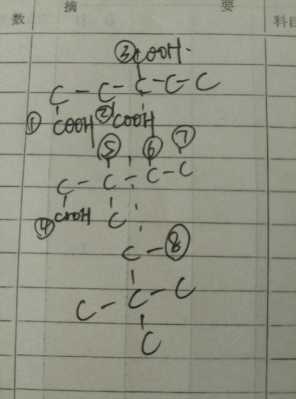 数 摘 要 科目
③COOH
C - C - C - C - C
① COOH ② COOH
⑤ ⑥ ⑦
C - C - C - C
④ COOH C
C - ⑧
C - C - C
C